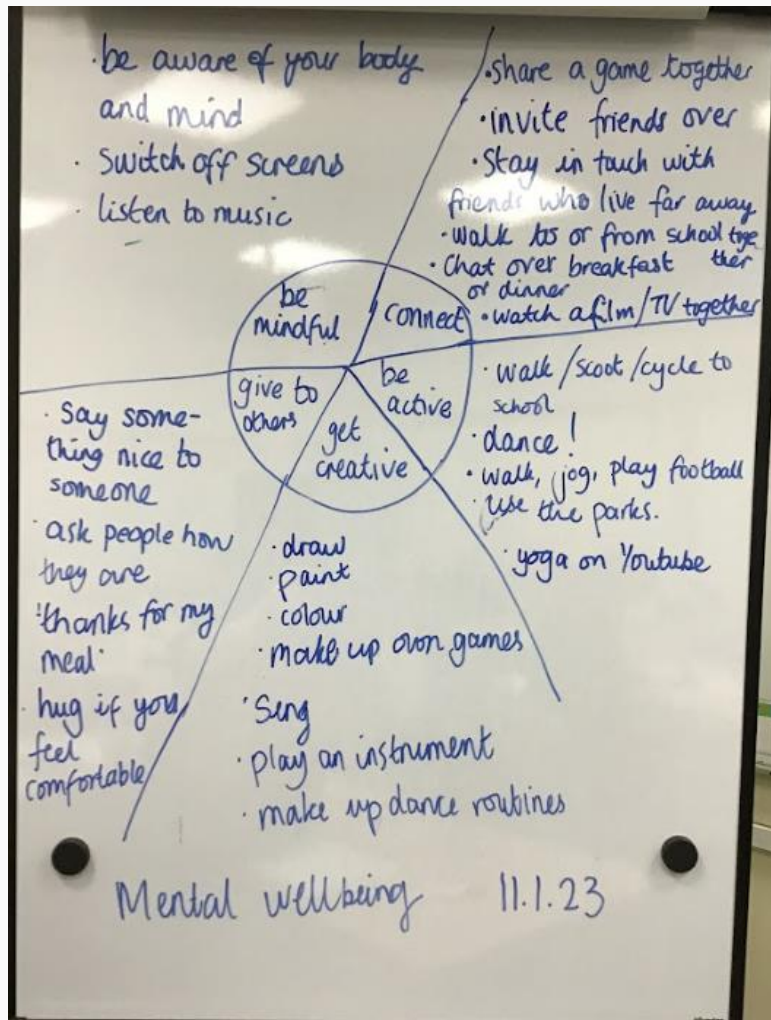 · be aware of your body
and mind
· switch off screens
· listen to music
· share a game together
· invite friends over
· Stay in touch with
friends who live far away
· walk to or from school toge
ther
· Chat over breakfast
or dinner
· watch a film/TV together
be
mindful
connect
give to
others
be
active
get
creative
· walk/scoot/cycle to
school
· dance!
· walk, jog, play football
· use the parks.
· yoga on Youtube
· say some-
thing nice to
someone
· ask people how
they are
'thanks for my
meal'
· hug if you
feel
comfortable
· draw
· paint
· colour
· make up own games
· Sing
· play an instrument
· make up dance routines
Mental wellbeing 11.1.23